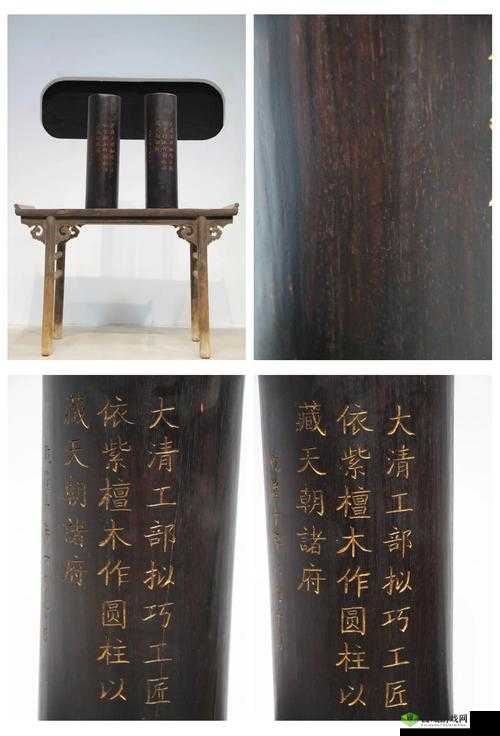 大清工部拟巧工匠
依紫檀木作圆柱以
藏天朝諸府
大清工部拟巧工匠
依紫檀木作圆柱以
藏天朝諸府